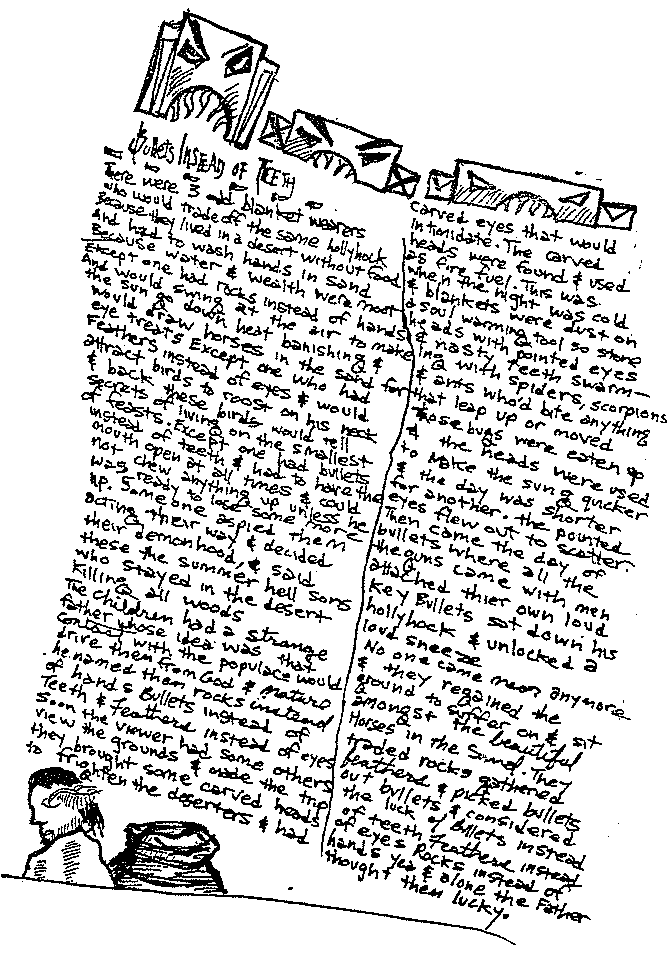 Bullets Instead of Teeth
There were 3 odd blanket wearers
who would trade off the same hollyhock
Because they lived in a desert without food
And had to wash hands in sand
Because water & wealth were most
Except one had rocks instead of hands
And would swing at the air to make
the sun go down heat banishing &
would draw horses in the sand for
eye treats Except one who had
Feathers instead of eyes & would
attract birds to roost on his neck
& back these birds would tell
secrets of living on the smallest
of feasts. Except one had bullets
instead of teeth & had to have the
mouth open at all times & could
not chew anything up unless he
was ready to lose some more
up. Someone aspied them
acting their way & decided
their demonhood, & said
these the summer hell sons
who stayed in the desert
killing all woods
The children had a strange
father whose idea was that
contact with the populace would
drive them from God & nature
he named them rocks instead
of hands Bullets instead of
Teeth & Feathers instead of eyes
Soon the viewer had some others
view the grounds & made the trip
they brought some carved heads
to frighten the deserters & had
carved eyes that would
intimidate. The carved
heads were found & used
as fire fuel. This was
when the night was cold
& blankets were dust on
a soul warming tool so stone
heads with pointed eyes
& nasty teeth swarm-
ing with spiders, scorpions
& ants who'd bite anything
that leap up or moved
those bugs were eaten up
& the heads were used
to make the sun go quicker
& the day was shorter
for another. the pointed
eyes flew out to scatter.
Then came the day of
bullets where all the
the guns came with men
attached thier own loud
key Bullets sat down his
hollyhock & unlocked a
loud sneeze
No one came near anymore
& they regained the
ground to suffer on & sit
amongst the beautiful
Horses in the Sand. They
traded rocks gathered
feathers & picked bullets
out bullets & considered
the luck of Bullets instead
of teeth feathers instead
of eyes Rocks instead of
hands yea & alone the Father
thought them lucky.